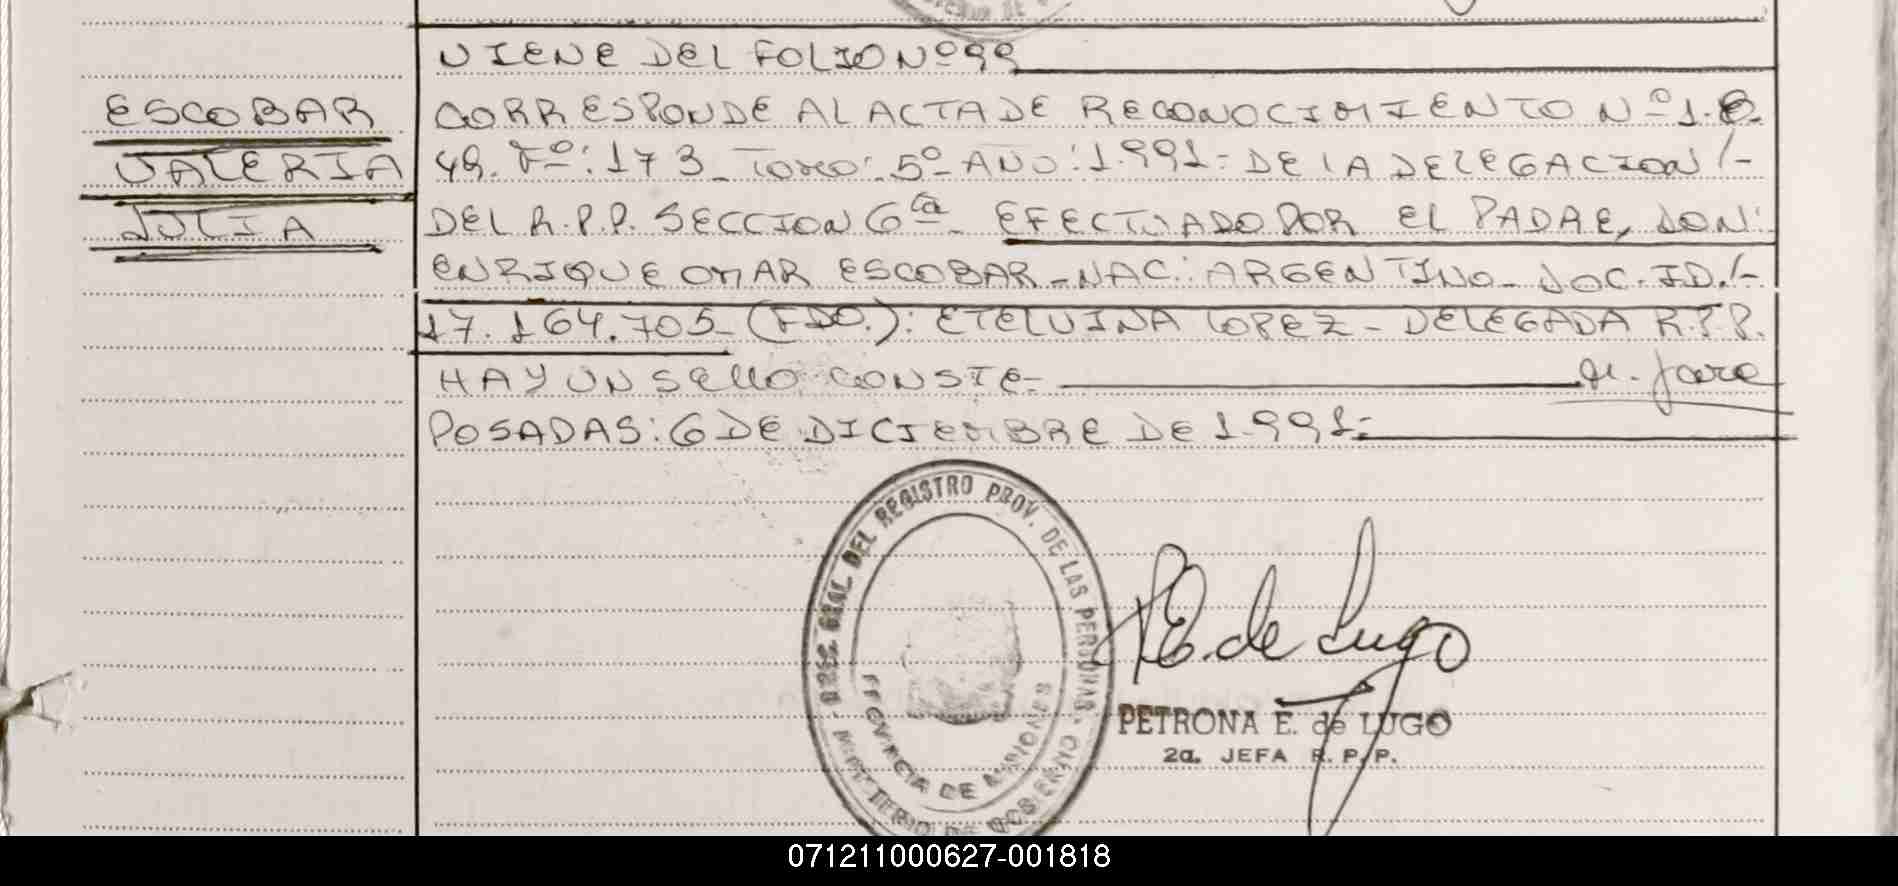 VIENE DEL FOLIO Nº 99
ESCOBAR
VALERIA
JULIA
CORRESPONDE AL ACTA DE RECONOCIMIENTO Nº 1.8
49. Fº: 173_ TOMO: 5º_ AÑO: 1.991_ DE LA DELEGACION/-
DEL R.P.P. SECCION 6ª_ EFECTUADO POR EL PADRE, DON:
ENRIQUE OMAR ESCOBAR_NAC: ARGENTINO_ DOC. ID./-
17.164.705_ (FDO.): ETELVINA LOPEZ - DELEGADA R.P.P.
HAY UN SELLO CONSTE_
POSADAS: 6 DE DICIEMBRE DE 1.991:
GRAL DEL REGISTRO PROV. DE LAS PERSONAS.
MINISTERIO DE GOBIERNO
PROVINCIA DE MISIONES
E. de Lugo
PETRONA E. de LUGO
2a. JEFA R.P.P.
071211000627-001818